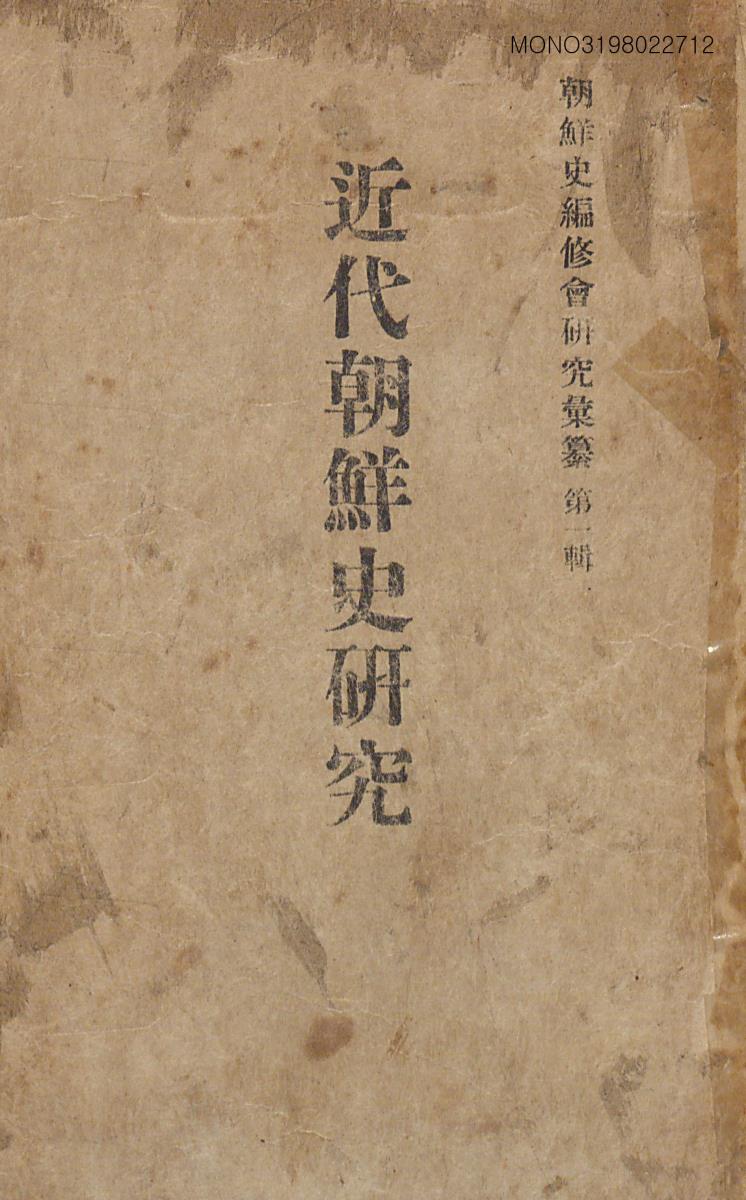 MONO3198022712
朝鮮史編修會研究彙纂 第一輯
近代朝鮮史研究